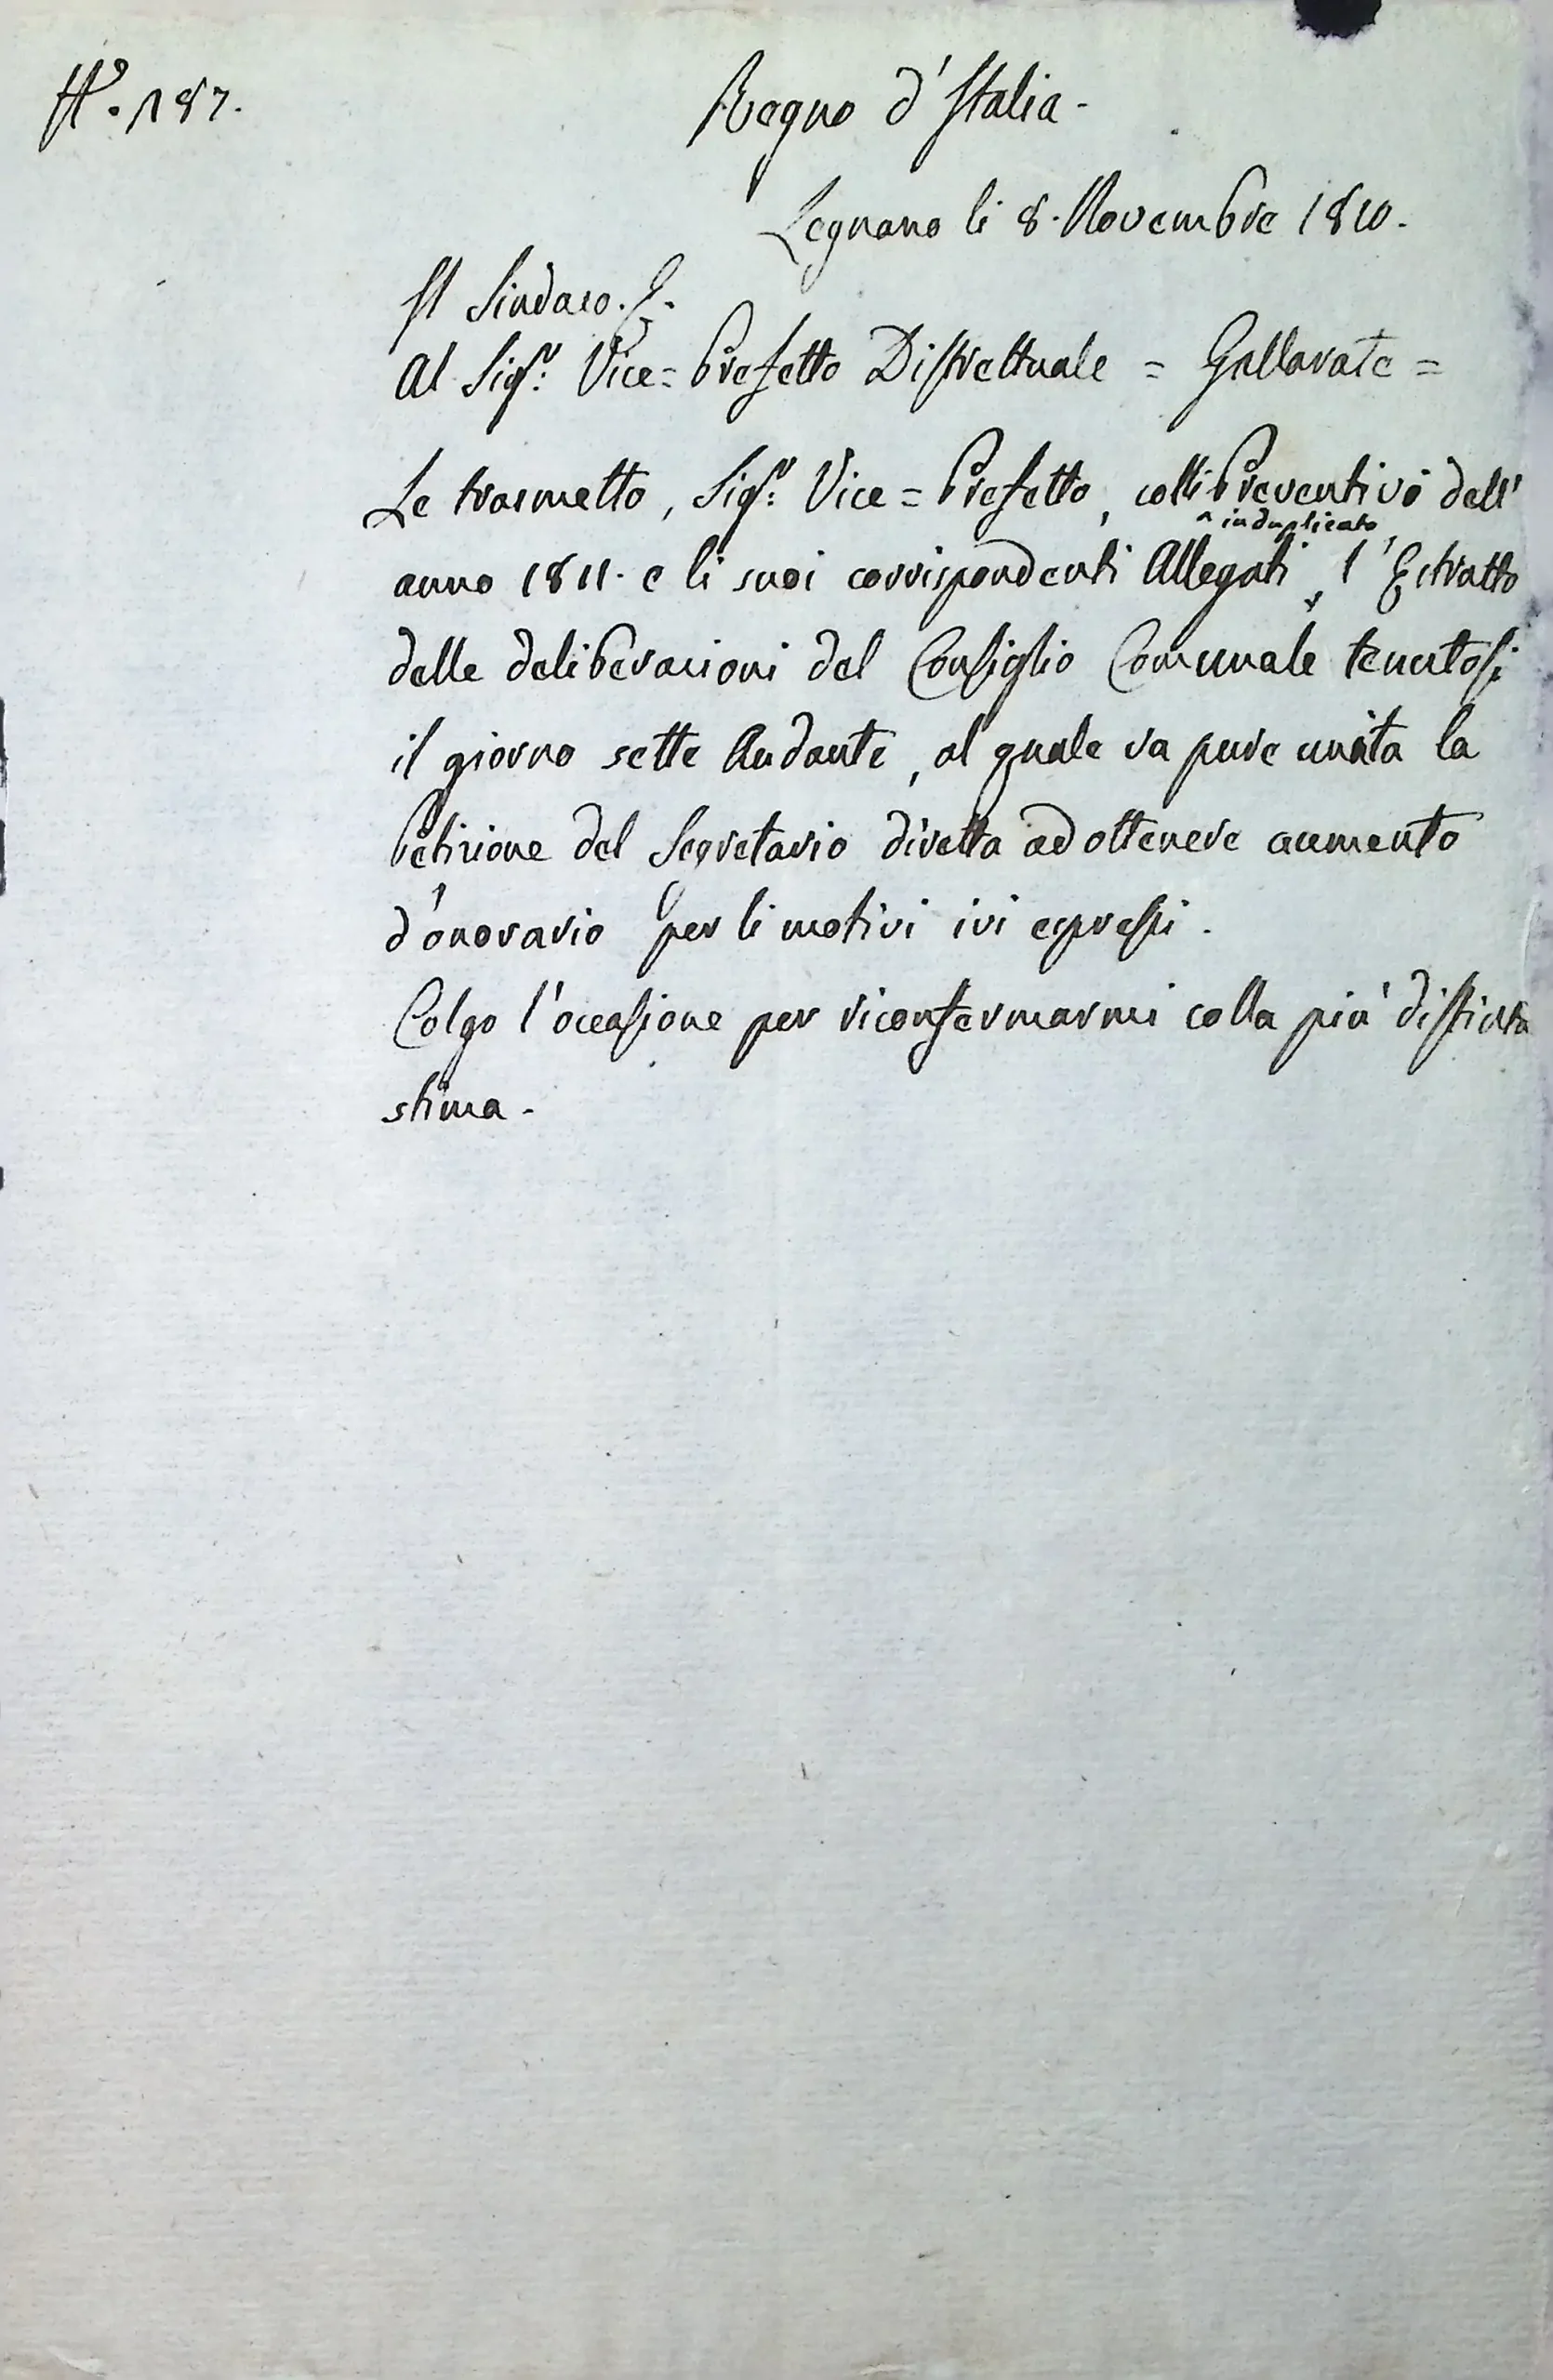 N.° 187.
Regno d'Italia -
Legnano li 8. Novembre 1810.
Il Sindaco.
Al Sig.r Vice= Prefetto Distrettuale = Gallarate =
Le trasmetto, Sig.r Vice= Prefetto, colli Preventivi dell'
in duplicato
anno 1811. e li suoi corrispondenti Allegati, l'Estratto
delle deliberazioni del Consiglio Comunale tenutosi
il giorno sette Andante, al quale va pure unita la
Petizione del Segretario diretta ad ottenere aumento
d'onorario per li motivi ivi espressi.
Colgo l'occasione per riconfermarmi colla più distinta
stima -